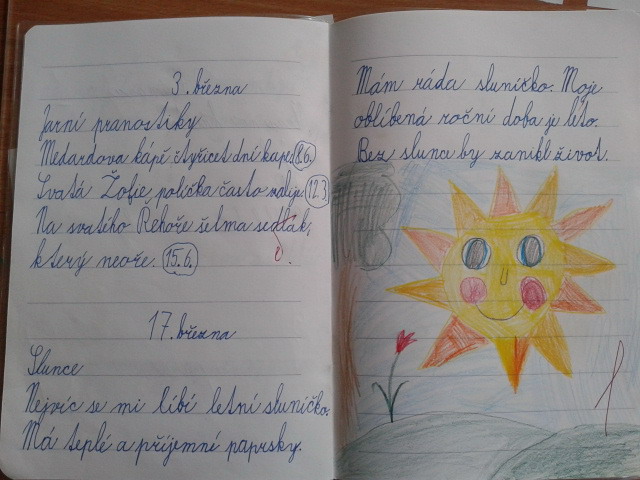 3. března
Jarní pranostiky
Medardova kápě čtyřicet dní kape. 8.6.
Svatá Žofie, políčka často zalije. 12.3.
Na svatého Řehoře šelma sedlák,
který neoře. 15.6.
17. března
Slunce
Nejvíc se mi líbí letní sluníčko.
Má teplé a příjemní paprsky.
Mám ráda sluníčko. Moje
oblíbená roční doba je léto.
Bez slunce by zanikl život.